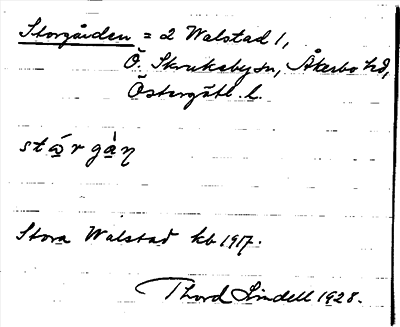 Storgården = 2 Walstad 1,
Ö. Skrukeby sn, Åkerbo hd,
Östergötl. l.
stǻr gàṇ
Stora Walstad kb 1917.
Thord Lindell 1928.